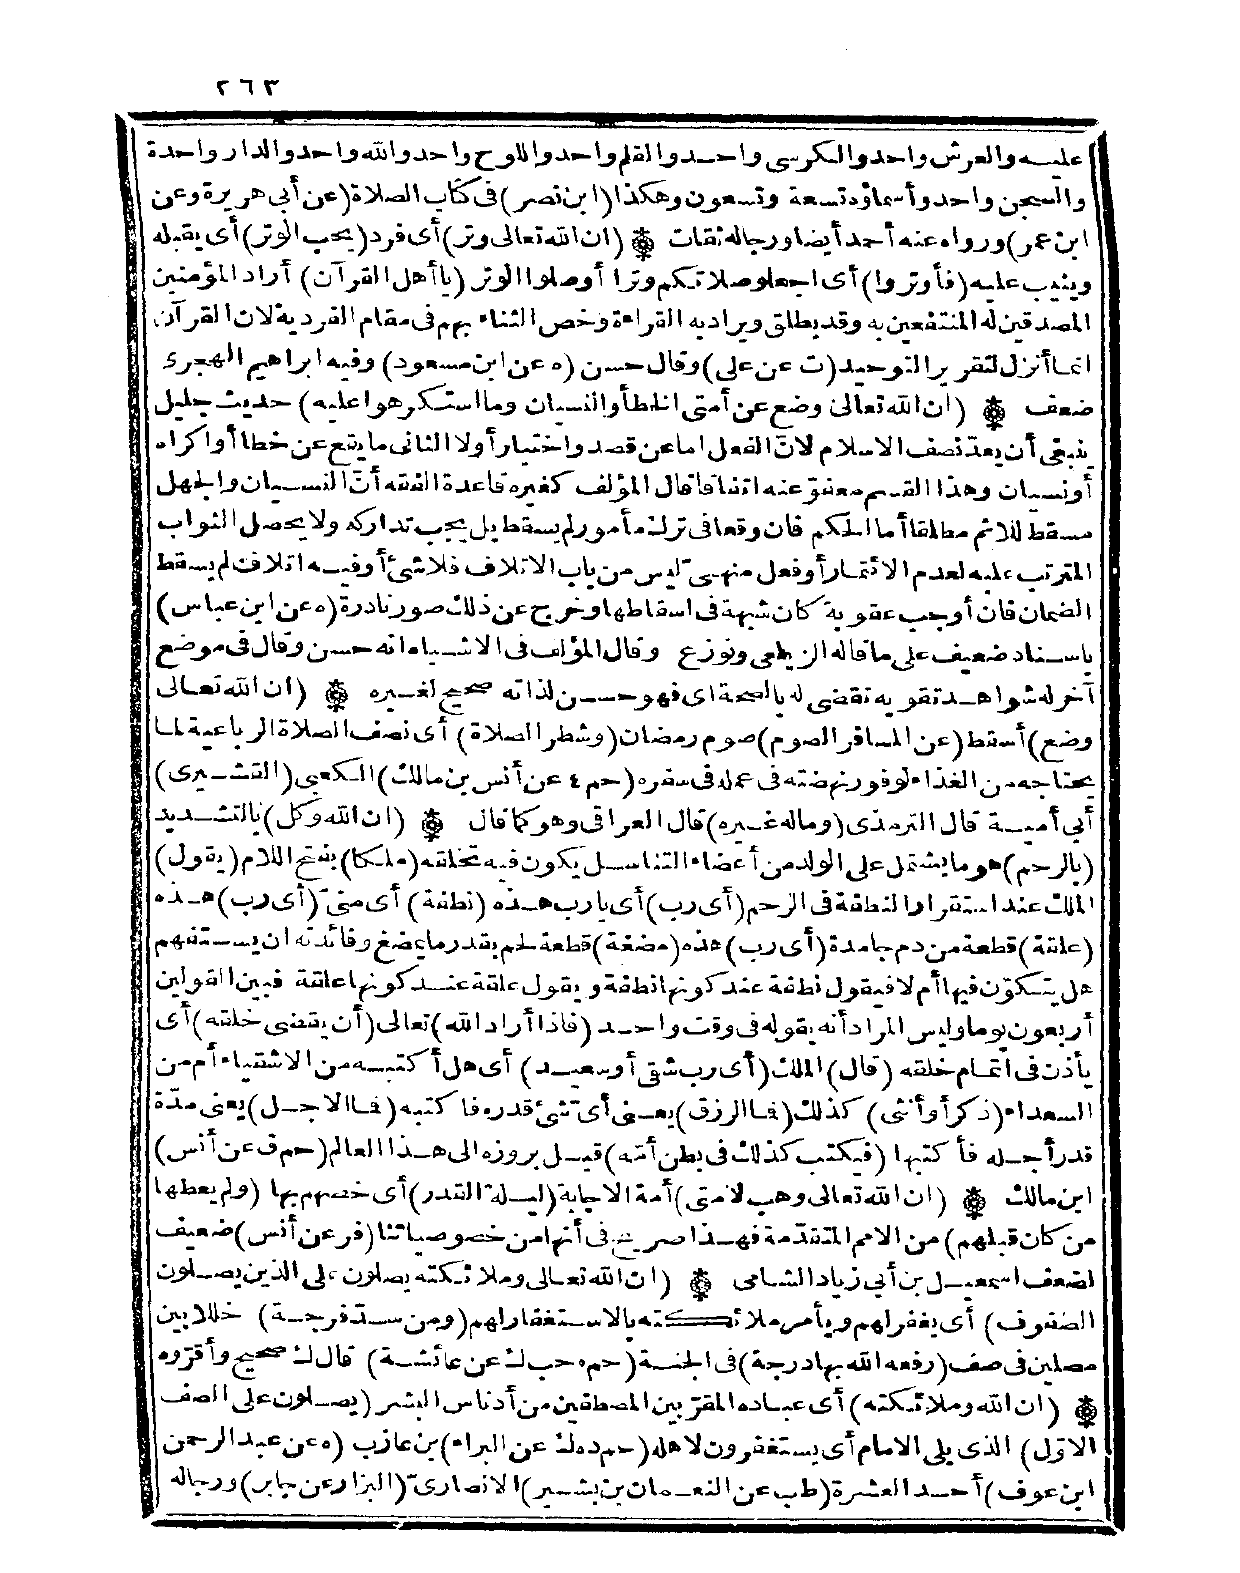 ٢٦٣
عليه والعرش واحد والكرسى واحد والقلم واحد واللوح واحد والله واحد والدار واحدة
والسجن واحد وأسماؤه تسعة وتسعون وهكذا (ابن نصر) فى كتاب الصلاة (عن أبى هريرة وعن
ابن عمر) ورواه عنه أحمد أيضا ورجاله ثقات (ان الله تعالى وتر) أى فرد (يحب الوتر) أى يقبله
ويثيب عليه (فأوتروا) أى اجعلوا صلاتكم وترا أو صلوا الوتر (يا أهل القرآن) أراد المؤمنين
المصدقين له المنتفعين به وقد يطلق ويراد به القراءة وخص الثناء بهم فى مقام الفردية لان القرآن
انما أنزل لتقرير التوحيد (ت عن على) وقال حسن (ه عن ابن مسعود) وفيه ابراهيم الهجرى
ضعف (ان الله تعالى وضع عن أمتى الخطأ والنسيان وما استكرهوا عليه) حديث جليل
ينبغى أن يعد نصف الاسلام لان الفعل اما عن قصد واختيار أولا الثانى ما يقع عن خطا أو اكراه
أو نسيان وهذا القسم معفو عنه اتفاقا قال المؤلف كغيره قاعدة الفقه أن النسيان والجهل
مسقط للاثم مطلقا أما الحكم فان وقعا فى ترك مأمور لم يسقط بل يجب تداركه ولا يحصل الثواب
المترتب عليه لعدم الائتمار أو فعل منهى ليس من باب الاتلاف فلا شئ أو فيه اتلاف لم يسقط
الضمان فان أوجب عقوبة كان شبهة فى اسقاطها وخرج عن ذلك صور نادرة (ه عن ابن عباس)
باسناد ضعيف على ما قاله الزيلعى ونوزع وقال المؤلف فى الاشباه انه حسن وقال فى موضع
آخر له شواهد تقويه تقضى له بالصحة اى فهو حسن لذاته صحيح لغيره (ان الله تعالى
وضع) أسقط (عن المسافر الصوم) صوم رمضان (وشطر الصلاة) أى نصف الصلاة الرباعية لما
يحتاجه من الغذاء لوفور نهضته فى عمله فى سفره (حم ٤ عن أنس بن مالك) الكعبى (القشيرى)
أبى أمية قال الترمذى (وماله غيره) قال العراقى وهو كما قال (ان الله وكل) بالتشديد
(بالرحم) هو ما يشتمل على الولد من أعضاء التناسل يكون فيه تخلقه (ملكا) بفتح اللام (يقول)
الملك عند استقرار النطفة فى الرحم (أى رب) أى يا رب هذه (نطفة) أى منى (أى رب) هذه
(علقة) قطعة من دم جامدة (أى رب) هذه (مضغة) قطعة لحم بقدر ما يمضغ وفائدته ان يستفهم
هل يتكون فيها أم لا فيقول نطفة عند كونها نطفة ويقول علقة عند كونها علقة فبين القولين
أربعون يوما وليس المراد أنه يقوله فى وقت واحد (فاذا أراد الله) تعالى (أن يقضى خلقه) أى
يأذن فى اتمام خلقه (قال) الملك (أى رب شقى أو سعيد) أى هل أكتبه من الاشقياء أم من
السعداء (ذكر أو أنثى) كذلك (فما الرزق) يعنى أى شئ قدره فاكتبه (فما الاجل) يعنى مدة
قدر أجله فأكتبها (فيكتب كذلك فى بطن أمه) قبل بروزه الى هذا العالم (حم ق عن أنس)
ابن مالك (ان الله تعالى وهب لامتى) أمة الاجابة (ليلة القدر) أى خصهم بها (ولم يعطها
من كان قبلهم) من الامم المتقدمة فهذا صريح فى أنها من خصوصياتنا (فر عن أنس) ضعيف
لضعف اسمعيل بن أبى زياد الشامى (ان الله تعالى وملائكته يصلون على الذين يصلون
الصفوف) أى يغفر لهم ويأمر ملائكته بالاستغفار لهم (ومن سد فرجة) خللا بين
مصلين فى صف (رفعه الله بها درجة) فى الجنة (حم ه حب ك عن عائشة) قال ك صحيح وأقروه
(ان الله وملائكته) أى عباده المقربين المصطفين من أدناس البشر (يصلون على الصف
الاول) الذى يلى الامام أى يستغفرون لاهله (حم د ه ك عن البراء) بن عازب (ه عن عبد الرحمن
ابن عوف) أحد العشرة (طب عن النعمان بن بشير) الانصارى (البزار عن جابر) ورجاله